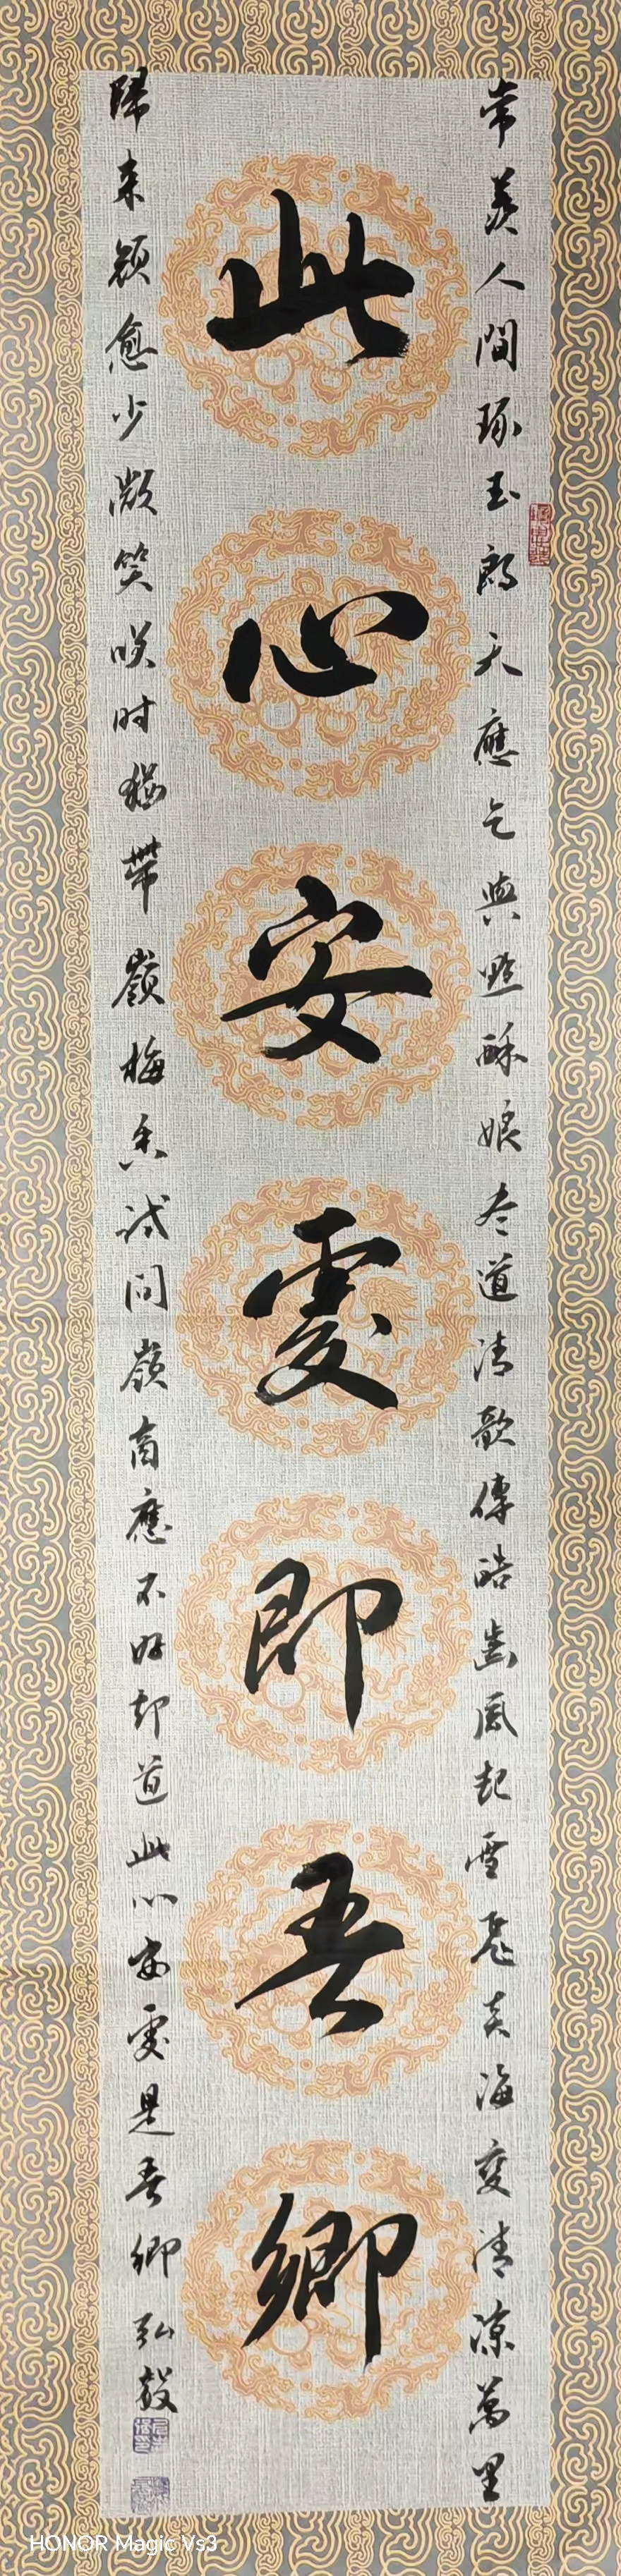 常羡人間琢玉郎天應乞與點酥娘盡道清歌傳皓齒風起雪飛炎海變清涼萬里
此心安處即吾鄉
歸來顏愈少微笑笑時猶帶嶺梅香試問嶺南應不好却道此心安處是吾鄉弘毅
HONOR Magic Vs3